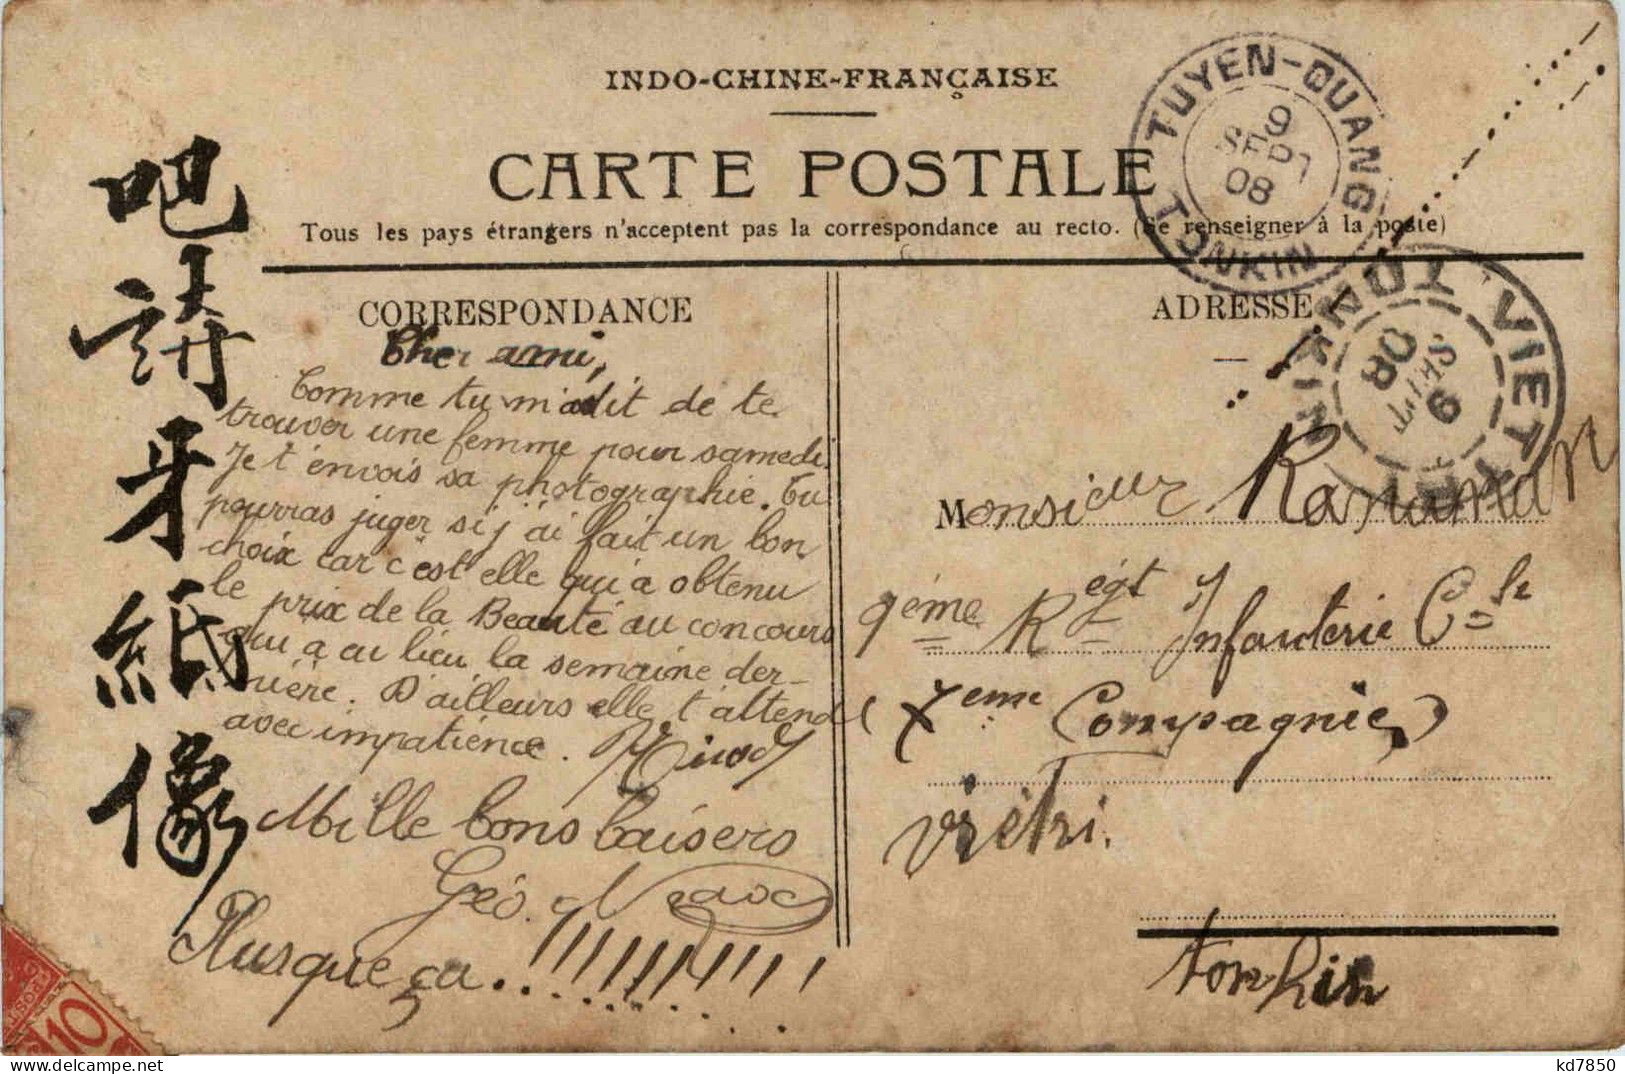 INDO-CHINE-FRANÇAISE
CARTE POSTALE
Tous les pays étrangers n'acceptent pas la correspondance au recto. (Se renseigner à la poste)
TUYEN-QUANG
9
SEPT
08
TONKIN
VIÉTRI
9
SEPT
08
CORRESPONDANCE
Cher ami,
Comme tu m'a dit de te
trouver une femme pour samedi.
Je t'envois sa photographie. Tu
pourras juger si j'ai fait un bon
choix car c'est elle qui a obtenu
le prix de la Beauté au concours
qui a eu lieu la semaine der-
nière. D'ailleurs elle t'attend
avec impatience.
Mille bons baisers
Géo.
Plus que ça..!!!!!!!!!!
吧
請
牙
紙
像
ADRESSE
Monsieur
9ème Régt Infanterie Cle
(Xeme Compagnie)
Viétri.
tonkin
10
kd7850